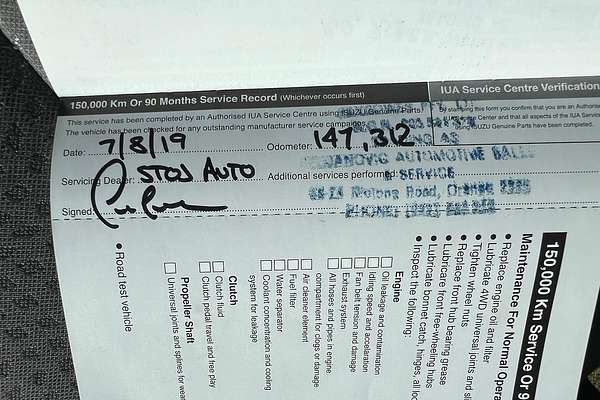 150,000 Km Or 90 Months Service Record (Whichever occurs first)
IUA Service Centre Verification
This service has been completed by an Authorised IUA Service Centre using ISUZU Genuine Parts.
The vehicle has been checked for any outstanding manufacturer service campaigns.
By stamping this form you confirm that you are an Authorised
Center and that all aspects of the IUA Service
ISUZU Genuine Parts have been completed.
Date: 7/8/19 Odometer: 147,312
Servicing Dealer: STOJ AUTO Additional services performed:
Signed:
AUTOMOTIVE SALES
& SERVICE
Road, Orange
150,000 Km Service Or 9
Maintenance For Normal Opera
• Replace engine oil and filter
• Lubricate 4WD universal joints and sli
• Tighten wheel nuts
• Replace front hub bearing grease
• Lubricate front free-wheeling hubs
• Lubricate bonnet catch, hinges, all loc
• Inspect the following:
Engine
Oil leakage and contamination
Idling speed and acceleration
Fan belt tension and damage
Exhaust system
All hoses and pipes in engine
compartment for clogs or damage
Air cleaner element
Fuel filter
Water separator
Coolant concentration and cooling
system for leakage
Clutch
Clutch fluid
Clutch pedal travel and free play
Propeller Shaft
Universal joints and splines for wear
• Road test vehicle